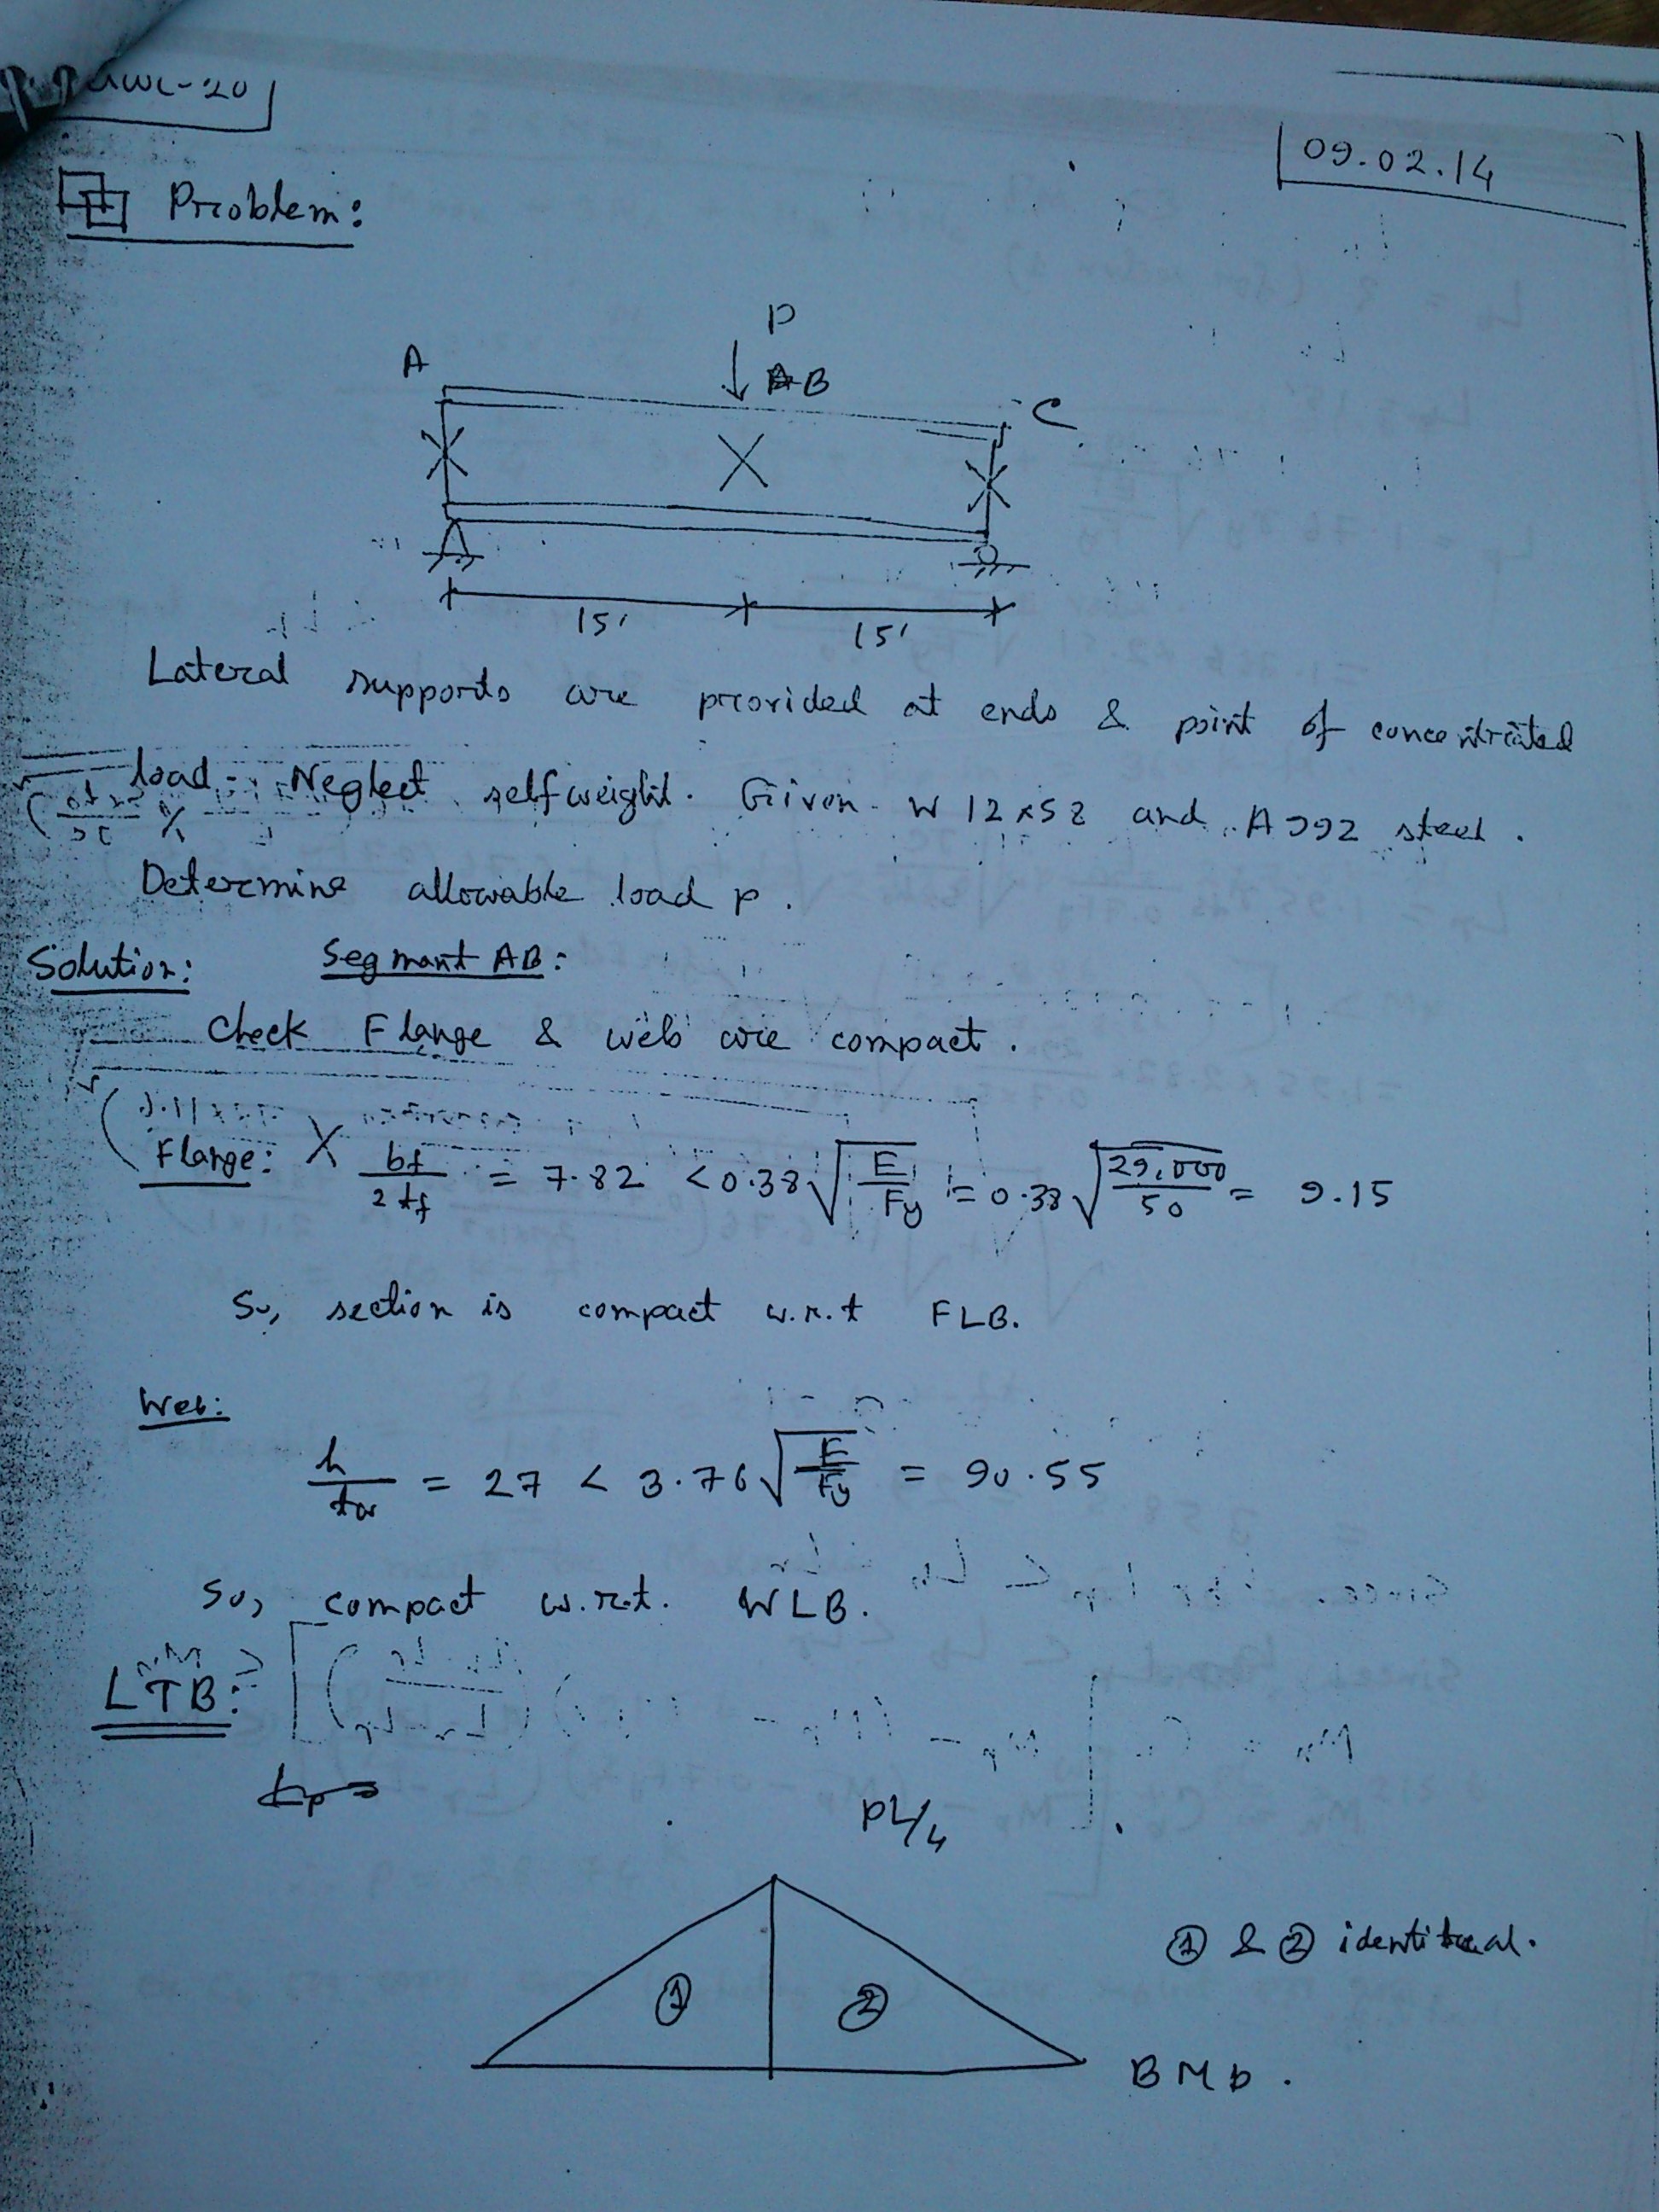 09.02.14
Problem:
P
A
B
C
15'
15'
Lateral supports are provided at ends & point of concentrated
load. Neglect selfweight. Given W 12x58 and A992 steel.
Determine allowable load P.
Solution: Segmant AB:
Check Flange & web are compact.
Flange: bf/2tf = 7.82 < 0.38√(E/Fy) = 0.38√(29,000/50) = 9.15
So, section is compact w.r.t FLB.
Web:
h/tw = 27 < 3.76√(E/Fy) = 90.55
So, compact w.r.t. WLB.
LTB:
Lp =
PL/4
① ②
① & ② identical.
BMD.